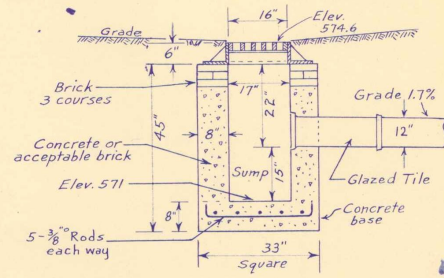 16"
Elev.
574.6
Grade
6"
Brick
3 courses
17"
22"
Grade 1.7%
45"
8"
12"
Concrete or
acceptable brick
Sump
15"
Glazed Tile
Elev. 571
8"
Concrete
base
5-3/8"⌀ Rods
each way
33"
Square